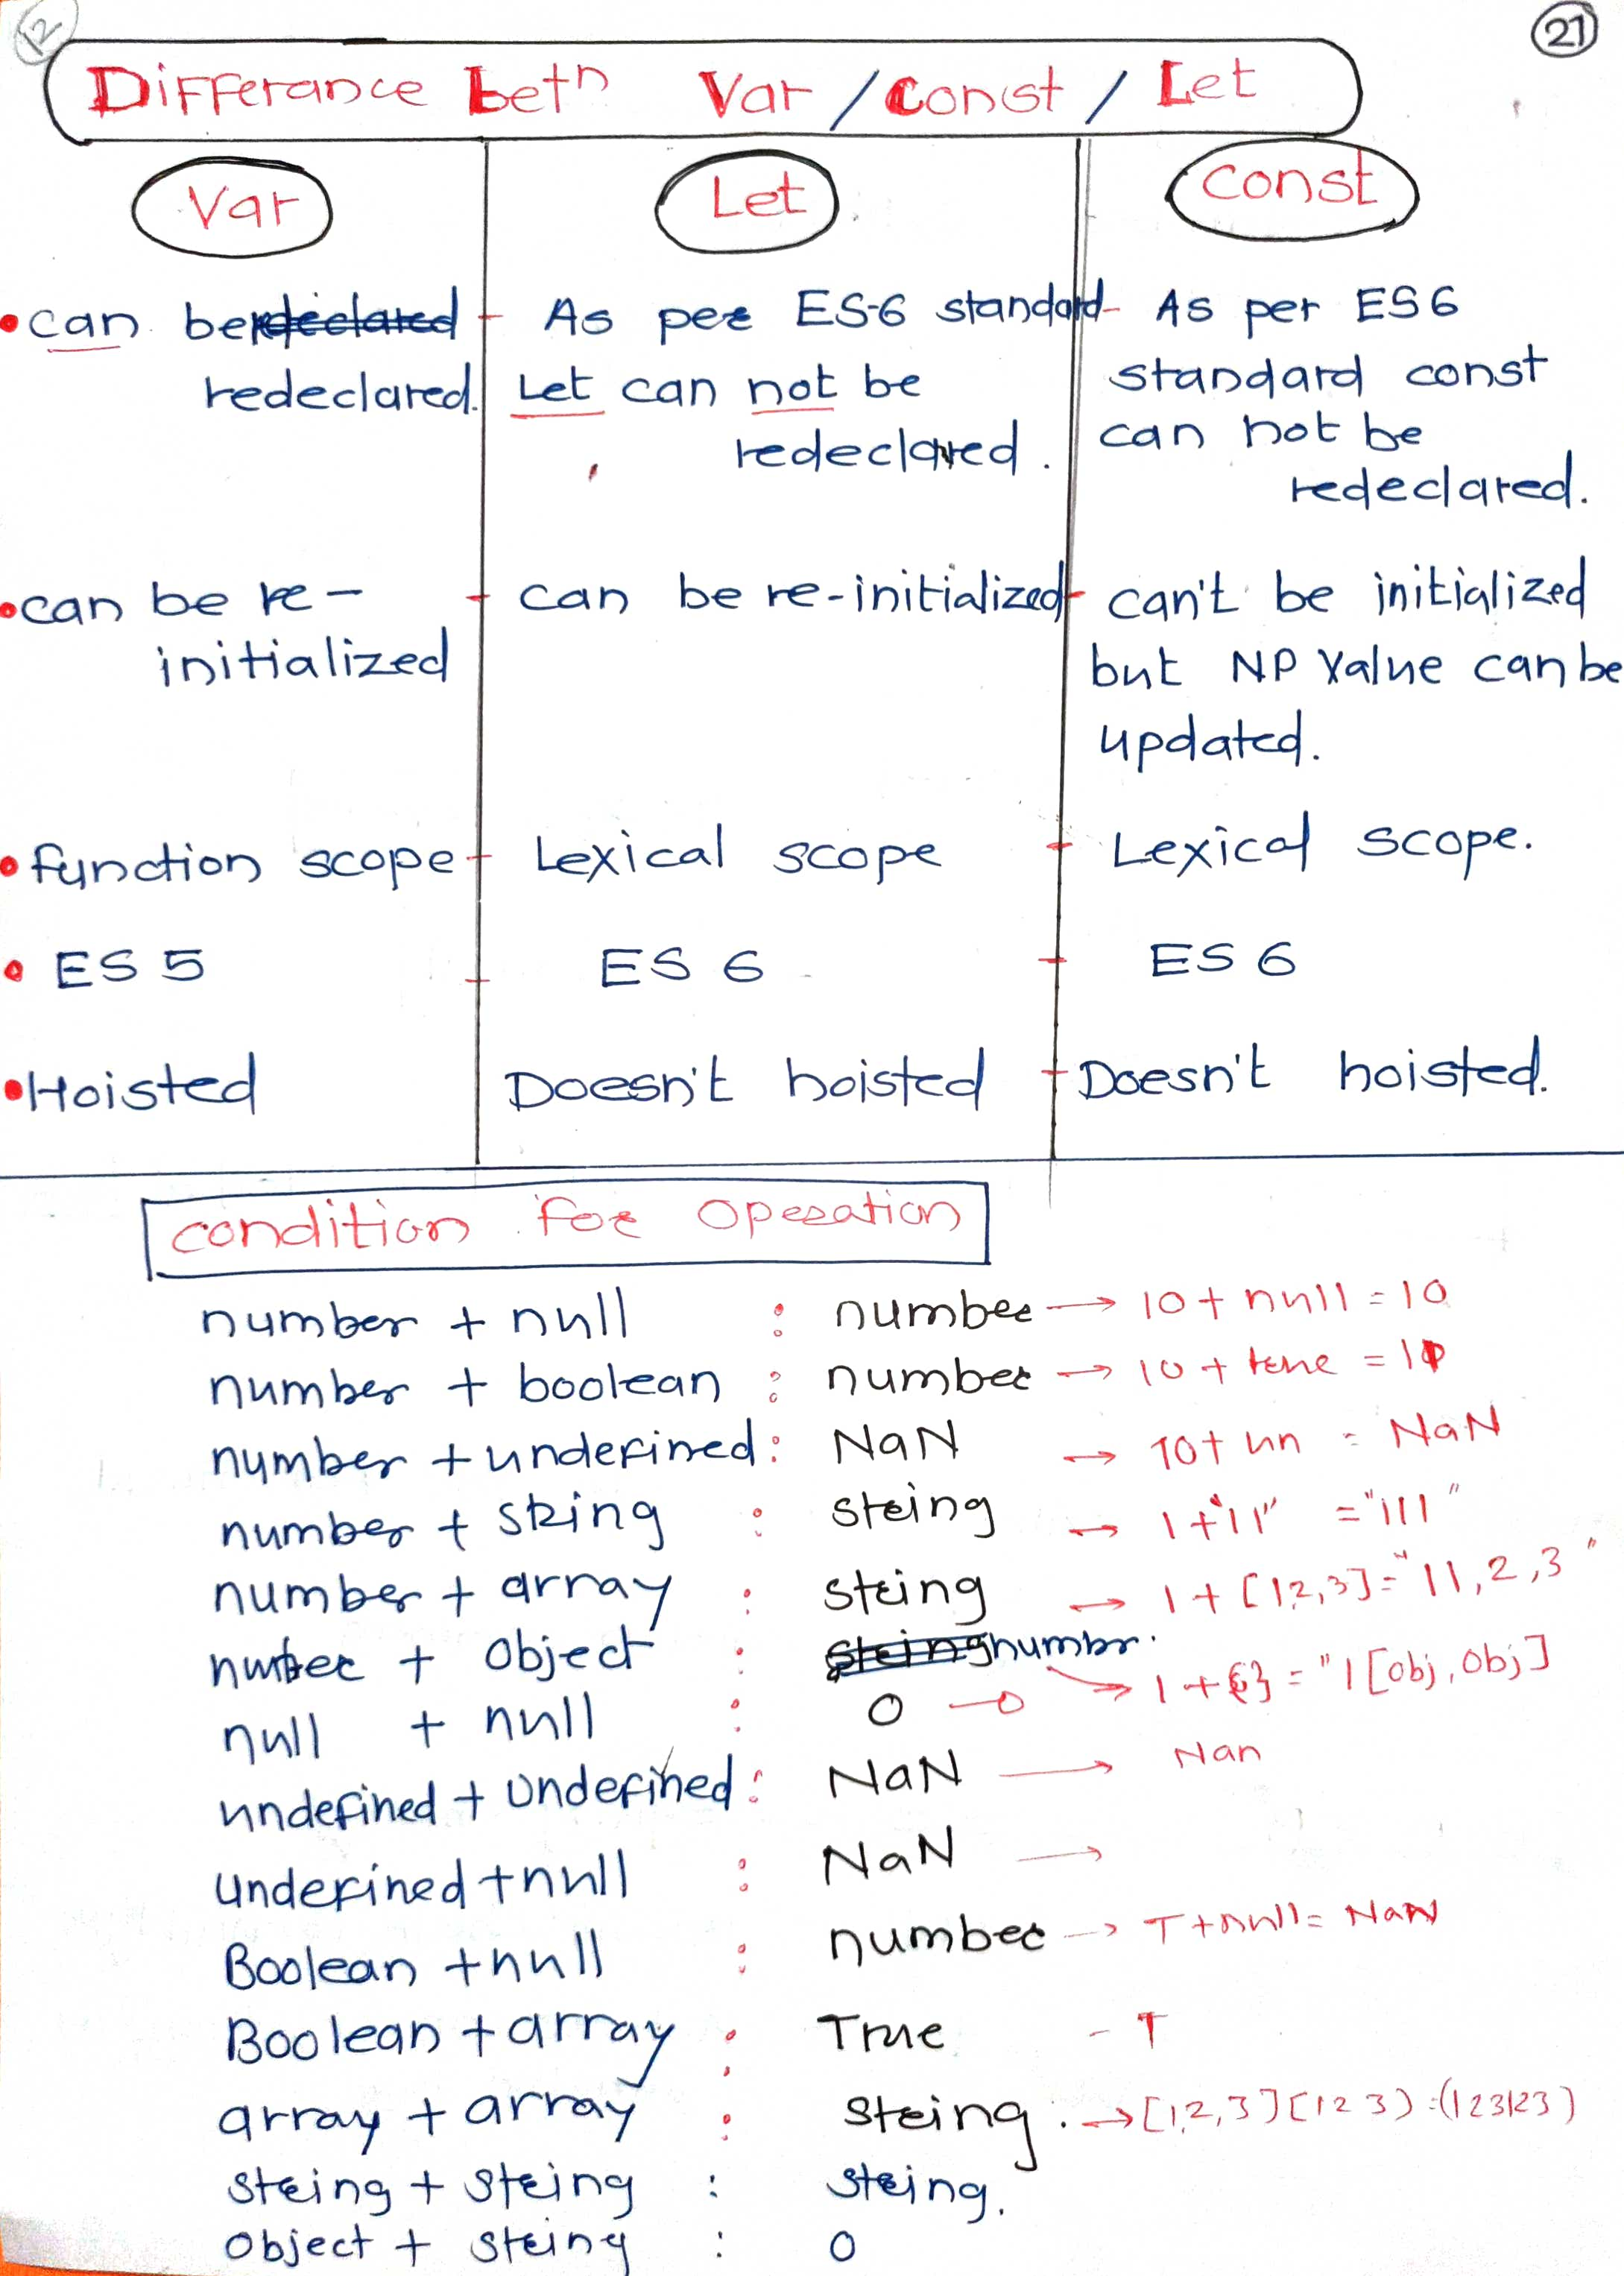 12
21
Differance betn Var / Const / Let
Var
Let
Const
can be redeclared
redeclared.
As per ES-6 standard
Let can not be
redeclared.
As per ES6
standard const
can not be
redeclared.
can be re-
initialized
can be re-initialized
can't be initialized
but NP value can be
updated.
function scope
Lexical scope
Lexical scope.
ES 5
ES 6
ES 6
Hoisted
Doesn't hoisted
Doesn't hoisted.
Condition for Operation
number + null : number → 10 + null = 10
number + boolean : number → 10 + true = 11
number + undefined : NaN → 10+ un = NaN
number + string : string → 1 + "11" = "111"
number + array : string → 1 + [1,2,3] = "11,2,3"
number + object : string number. → 1 + {} = "1[obj, obj]
null + null : 0 - 0
undefined + undefined : NaN → Nan
undefined + null : NaN →
Boolean + null : number → T + null = NaN
Boolean + array : True - T
array + array : string. → [1,2,3] [1 2 3) = (123123)
string + string : string.
object + string : 0